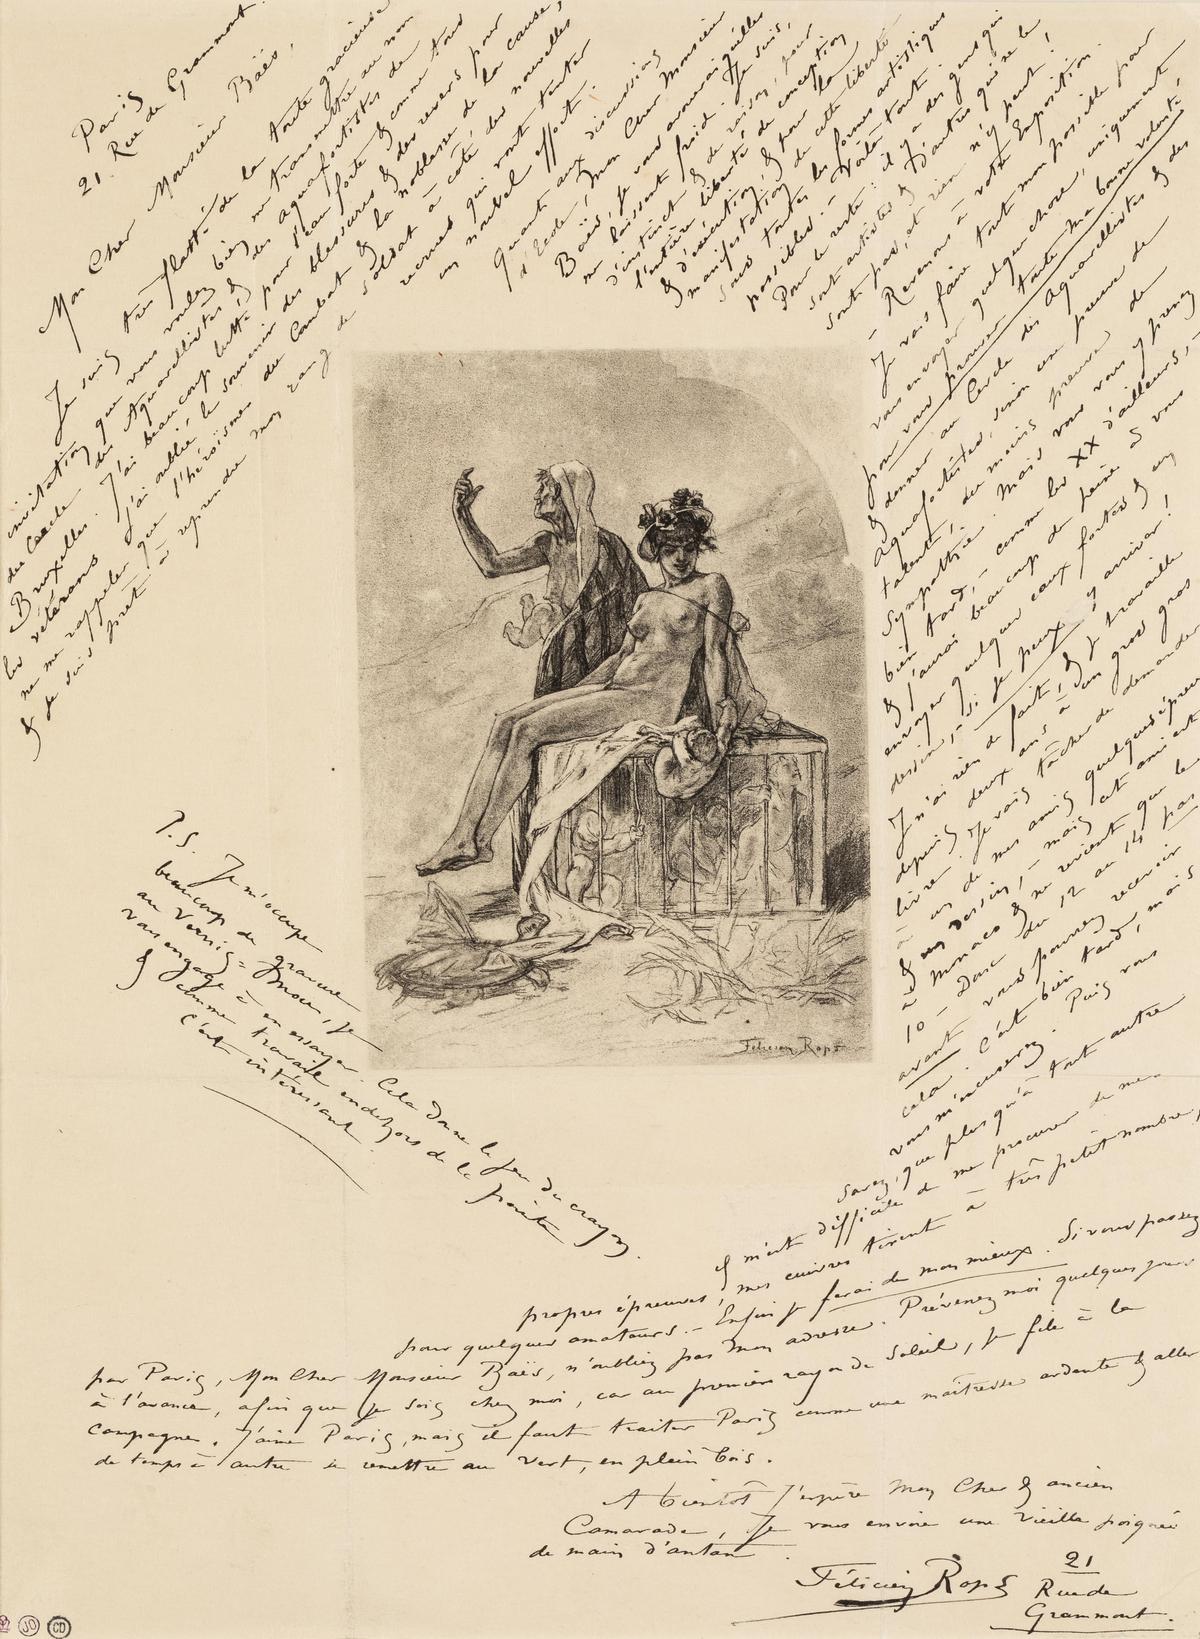 Paris
21. Rue de Grammont.
Mon Cher Monsieur Baës,
Je suis très flatté de la toute gracieuse
invitation que vous voulez bien me transmettre au nom
du Cercle des Aquarellistes & des Aquafortistes de
Bruxelles. J'ai beaucoup lutté pour l'eau forte & comme tous
les vétérans j'ai oublié le souvenir des blessures & des revers pour
ne me rappeler que l'héroïsme du Combat & la noblesse de la cause,
& je suis prêt à reprendre mon rang de soldat à côté des nouvelles
recrues qui vont tenter
un nouvel effort.
Quant aux discussions
d'Ecole, Mon Cher Monsieur
Baës, je vous avouerai qu'elles
me laissent froid. Je suis,
d'instinct & de raison, pour
l'entière liberté de conception
& d'exécution, & pour la
manifestation de cette liberté
sous toutes les formes artistiques
possibles. Voilà tout.
Pour le reste: il y a des gens qui
sont artistes & d'autres qui ne le
sont pas, et rien n'y peut!
– Revenons à votre Exposition.
Je vais faire tout mon possible pour
vous envoyer quelque chose, uniquement
pour vous prouver toute ma bonne volonté,
& donner au Cercle des Aquarellistes & des
Aquafortistes, sinon une preuve de
talent, du moins preuve de
Sympathie. Mais vous vous y prenez
bien tard, – comme les XX d'ailleurs, –
& j'aurai beaucoup de peine à vous
envoyer quelques eaux fortes & un
dessin, – si je peux y arriver!
Je n'ai rien de fait, & je travaille
depuis deux ans à un gros gros
livre. Je vais tâcher de demander
à un de mes amis quelques épreuves
& un dessin, – mais cet ami est
à Monaco & ne revient que le
10 – Donc du 12 au 14 pas
avant vous pourrez recevoir
cela. C'est bien tard, mais
vous m'excuserez. Puis vous
savez, que plus qu'à tout autre
il m'est difficile de me procurer de mes
propres épreuves, mes cuivres tirent à très petit nombre,
pour quelques amateurs. – Enfin je ferai de mon mieux. Si vous passez
par Paris, Mon Cher Monsieur Baës, n'oubliez pas mon adresse. Prévenez moi quelques jours
à l'avance, afin que je sois chez moi, car au premier rayon de soleil, je file à la
campagne. J'aime Paris, mais il faut traiter Paris comme une maîtresse ardente & aller
de temps à autre se remettre au vert, en plein bois.
A bientôt j'espère Mon Cher & ancien
Camarade, je vous envoie une vieille poignée
de main d'antan.
Félicien Rops
21
Rue de
Grammont.
P.S. Je m'occupe
beaucoup de gravure
au Vernis = mou, je
vous engage à en essayer. Cela donne le jeu du crayon
& comme travail en dehors de la pointe
c'est intéressant.
Félicien Rops
JO
CD